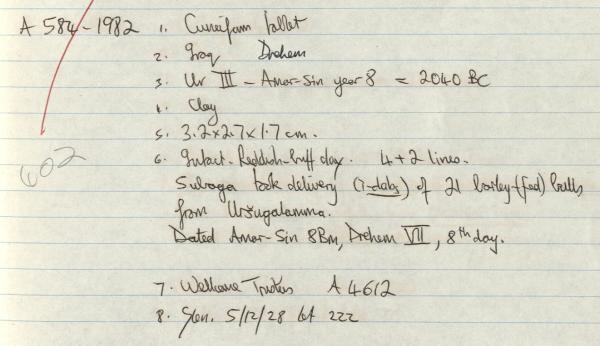 A 584-1982 1. Cuneiform tablet
2. Iraq Drehem
3. Ur III - Amar-Sin year 8 = 2040 BC
4. Clay
5. 3.2 x 2.7 x 1.7 cm.
602
6. Intact. Reddish-buff clay. 4 + 2 lines.
took delivery (i-dab5) of 21 barley-(fed) bulls
from
Dated Amar-Sin 8Bm, Drehem VII, 8th day.
7. Wellcome Trustees A 4612
8. 5/12/28 lot 222